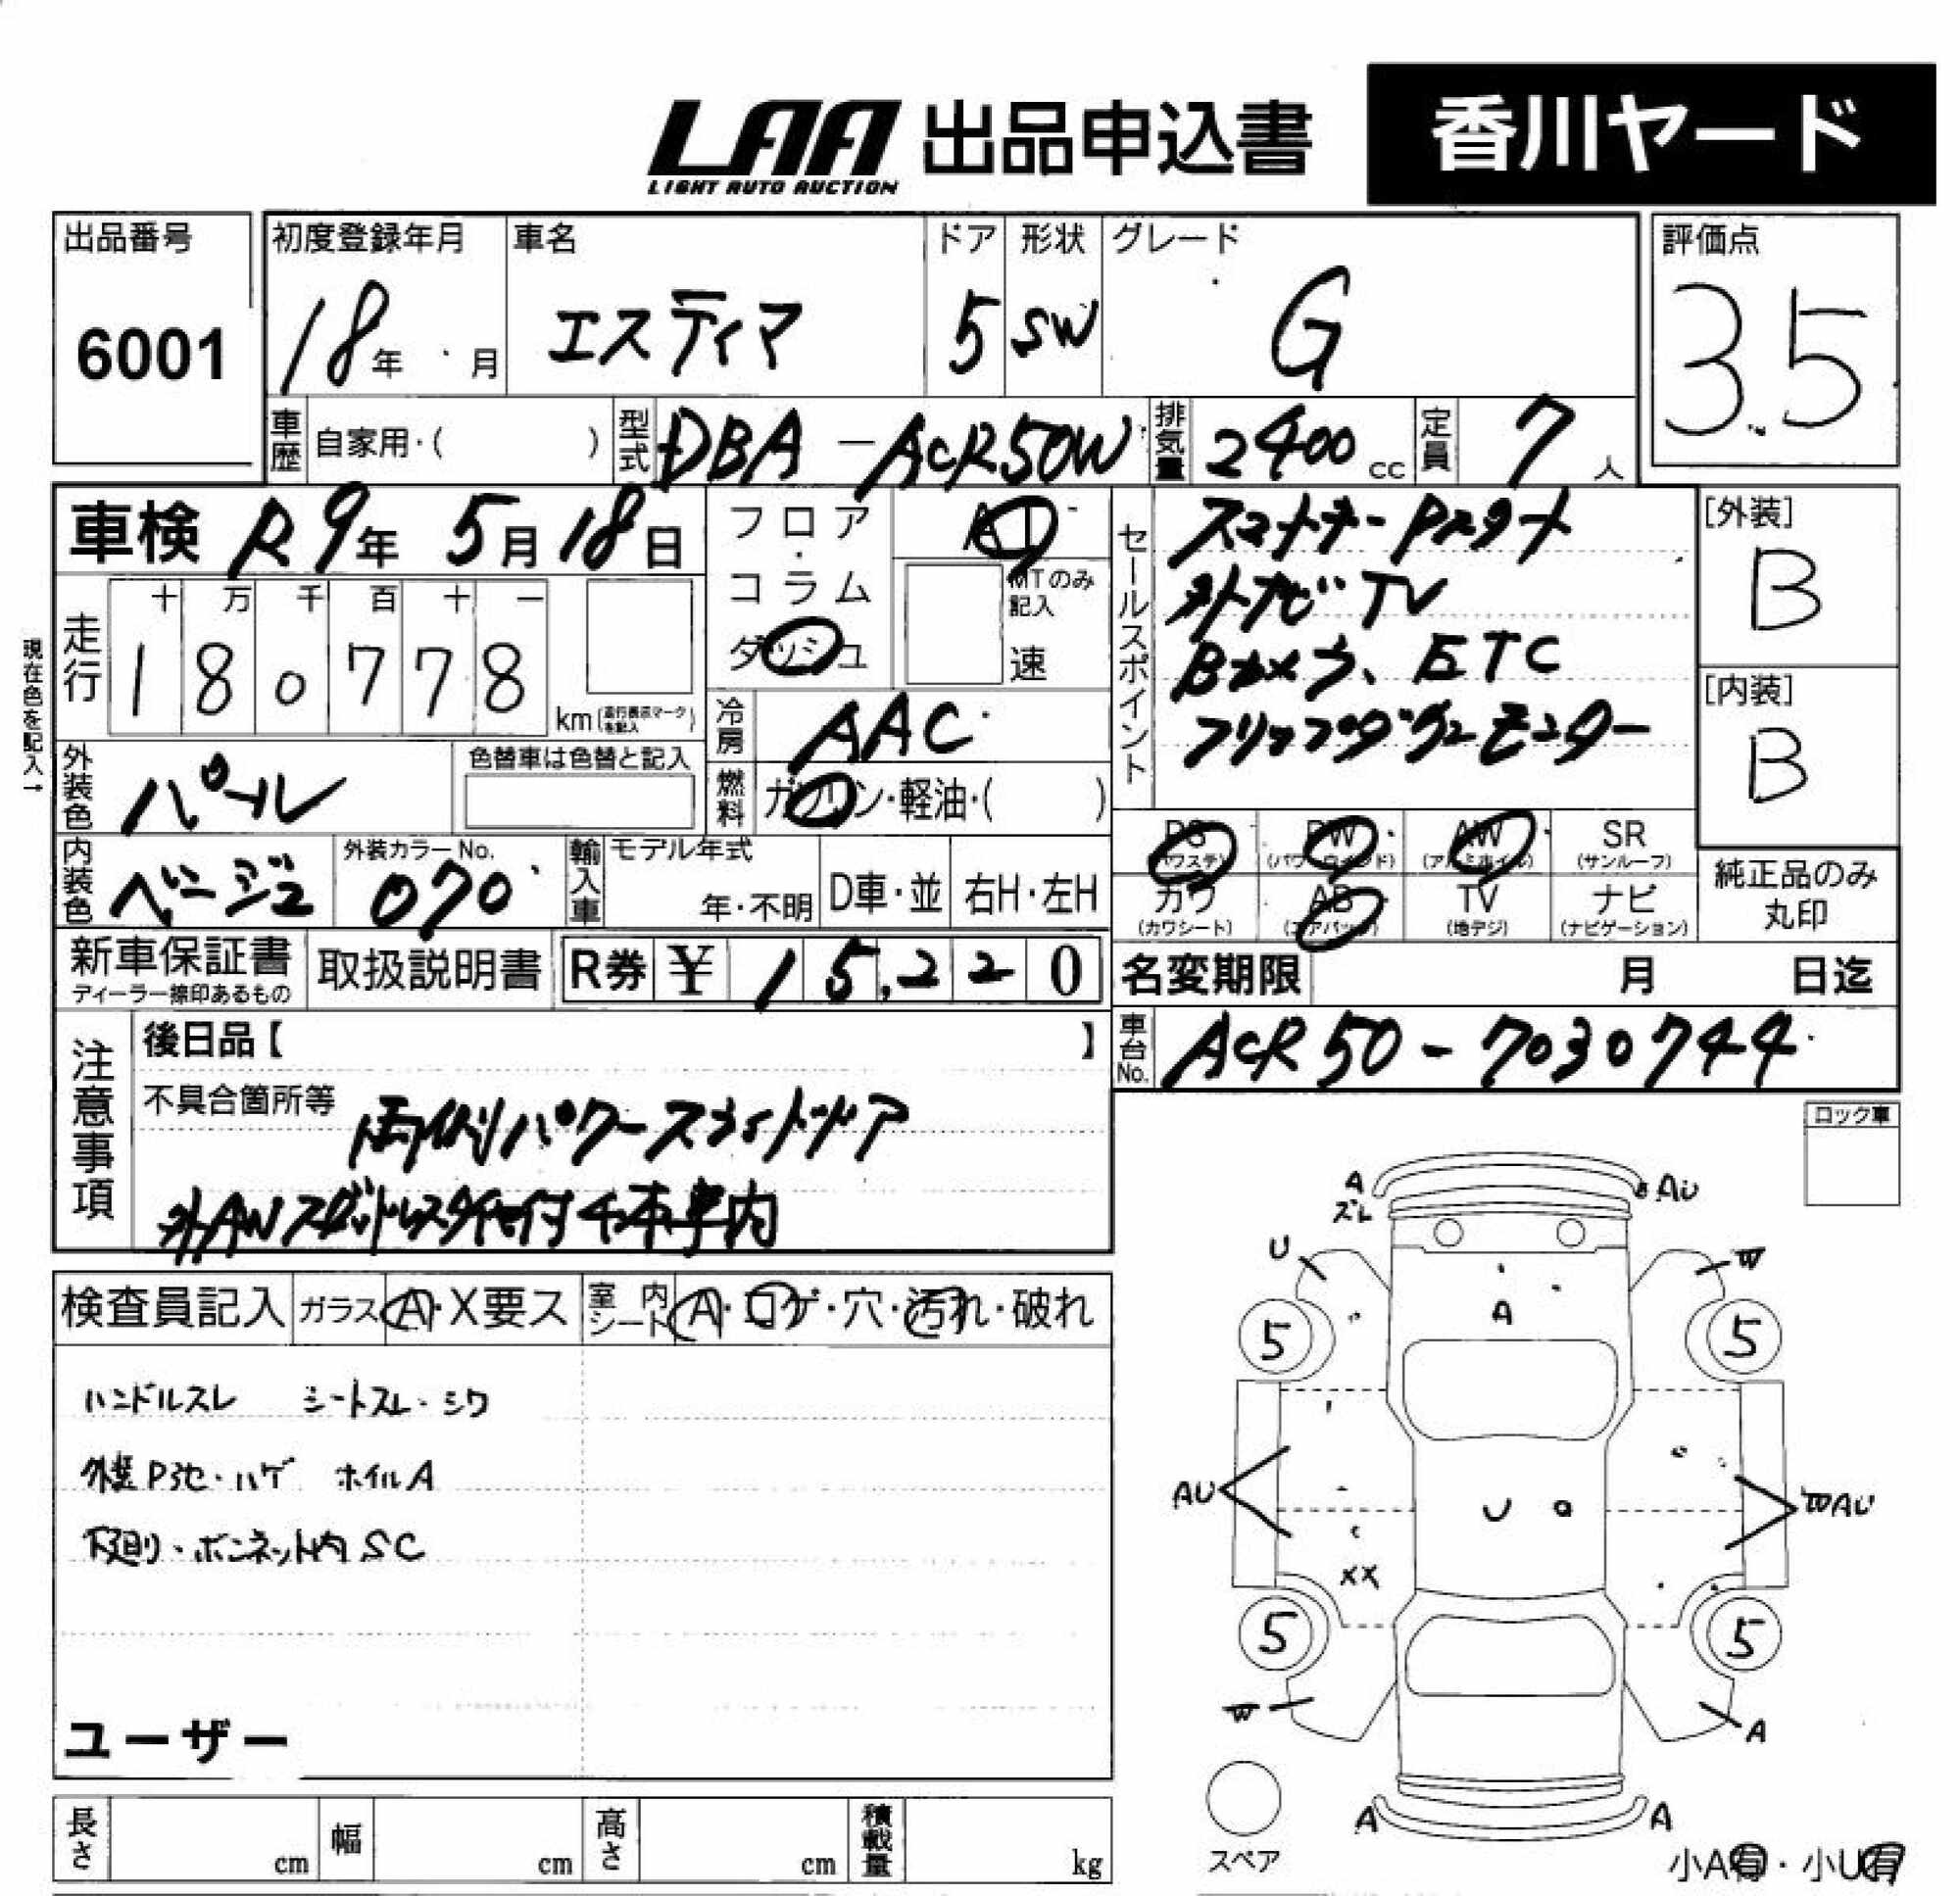 LAA 出品申込書 香川ヤード
LIGHT AUTO AUCTION
出品番号 初度登録年月 車名 ドア 形状 グレード 評価点
6001 18年 月 エスティマ 5 SW G 3.5
車歴 自家用・( ) 型式 DBA-ACR50W 排気量 2400cc 定員 7人
車検 R9年 5月18日
フロア・コラム
ダッシュ
AT
MTのみ記入
速
セールスポイント
スマートキー Pスタート
外ナビ TV
Bカメラ、ETC
フリップダウンモニター
[外装]
B
[内装]
B
現在色を記入→
走行 十 万 千 百 十 一
1 8 0 7 7 8 km(走行表示マークを記入)
冷房 AAC
燃料 ガソリン・軽油・( )
外装色 パール 色替車は色替と記入
内装色 ベージュ 外装カラーNo. 070 輸入車 モデル年式 年・不明 D車・並 右H・左H
PS PW AW SR
(パワステ) (パワーウィンド) (アルミホイル) (サンルーフ)
カワ AB TV ナビ
(カワシート) (エアバッグ) (地デジ) (ナビゲーション)
純正品のみ
丸印
新車保証書 取扱説明書 R券 ¥ 15,220
ディーラー捺印あるもの
名変期限 月 日迄
車台No. ACR50-7030744
注意事項
後日品【 】
不具合箇所等 両側パワースライドドア
外AWスタッドレスタイヤ付4本車内
ロック車
検査員記入 ガラス A・X要ス 室内シート A・コゲ・穴・汚れ・破れ
ハンドルスレ シートスレ・シワ
外装P池・ハゲ ホイルA
下廻り・ボンネット内SC
ユーザー
A AU
ズレ
U W
A
5 5
AU U WAU
XX
5 5
W A
A A
スペア
小A有・小U有
長さ cm 幅 cm 高さ cm 積載量 kg